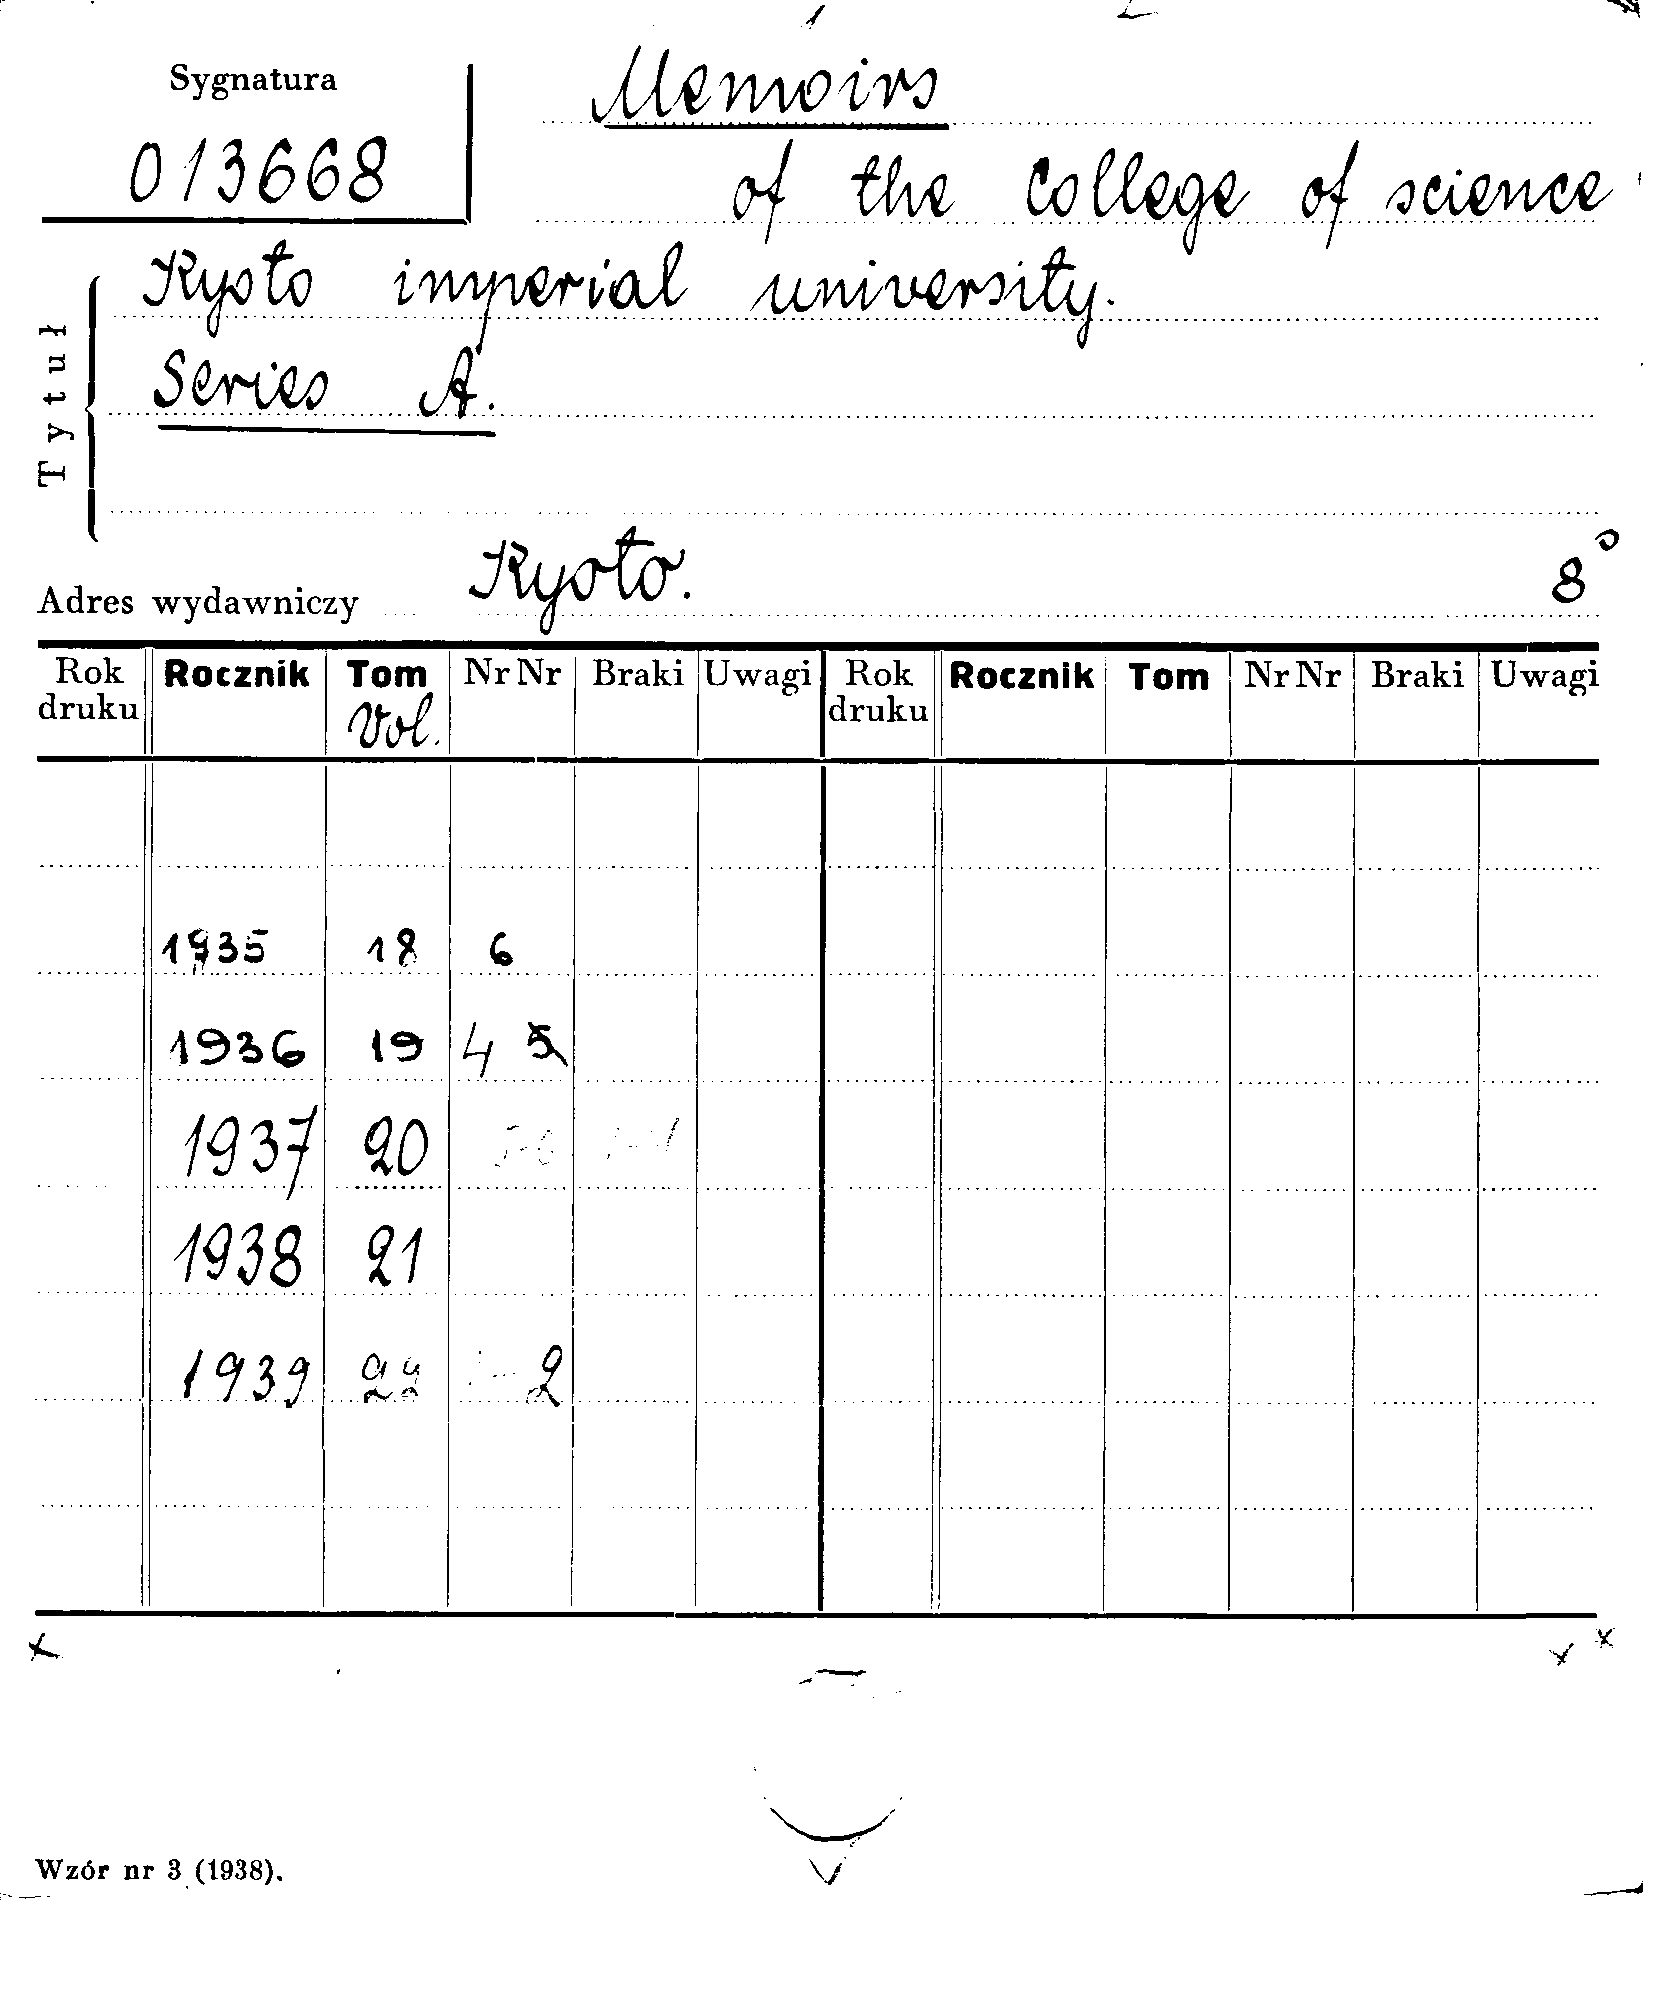 Sygnatura
Memoirs
013668
of the College of science
Kyoto imperial university.
Series A.
Tytuł
Kyoto.
8°
Adres wydawniczy
Rok druku Rocznik Tom Nr Nr Braki Uwagi Rok druku Rocznik Tom Nr Nr Braki Uwagi
Vol.
1935 18 6
1936 19 4 5
1937 20 5-6
1938 21
1939 22 2
Wzór nr 3 (1938).